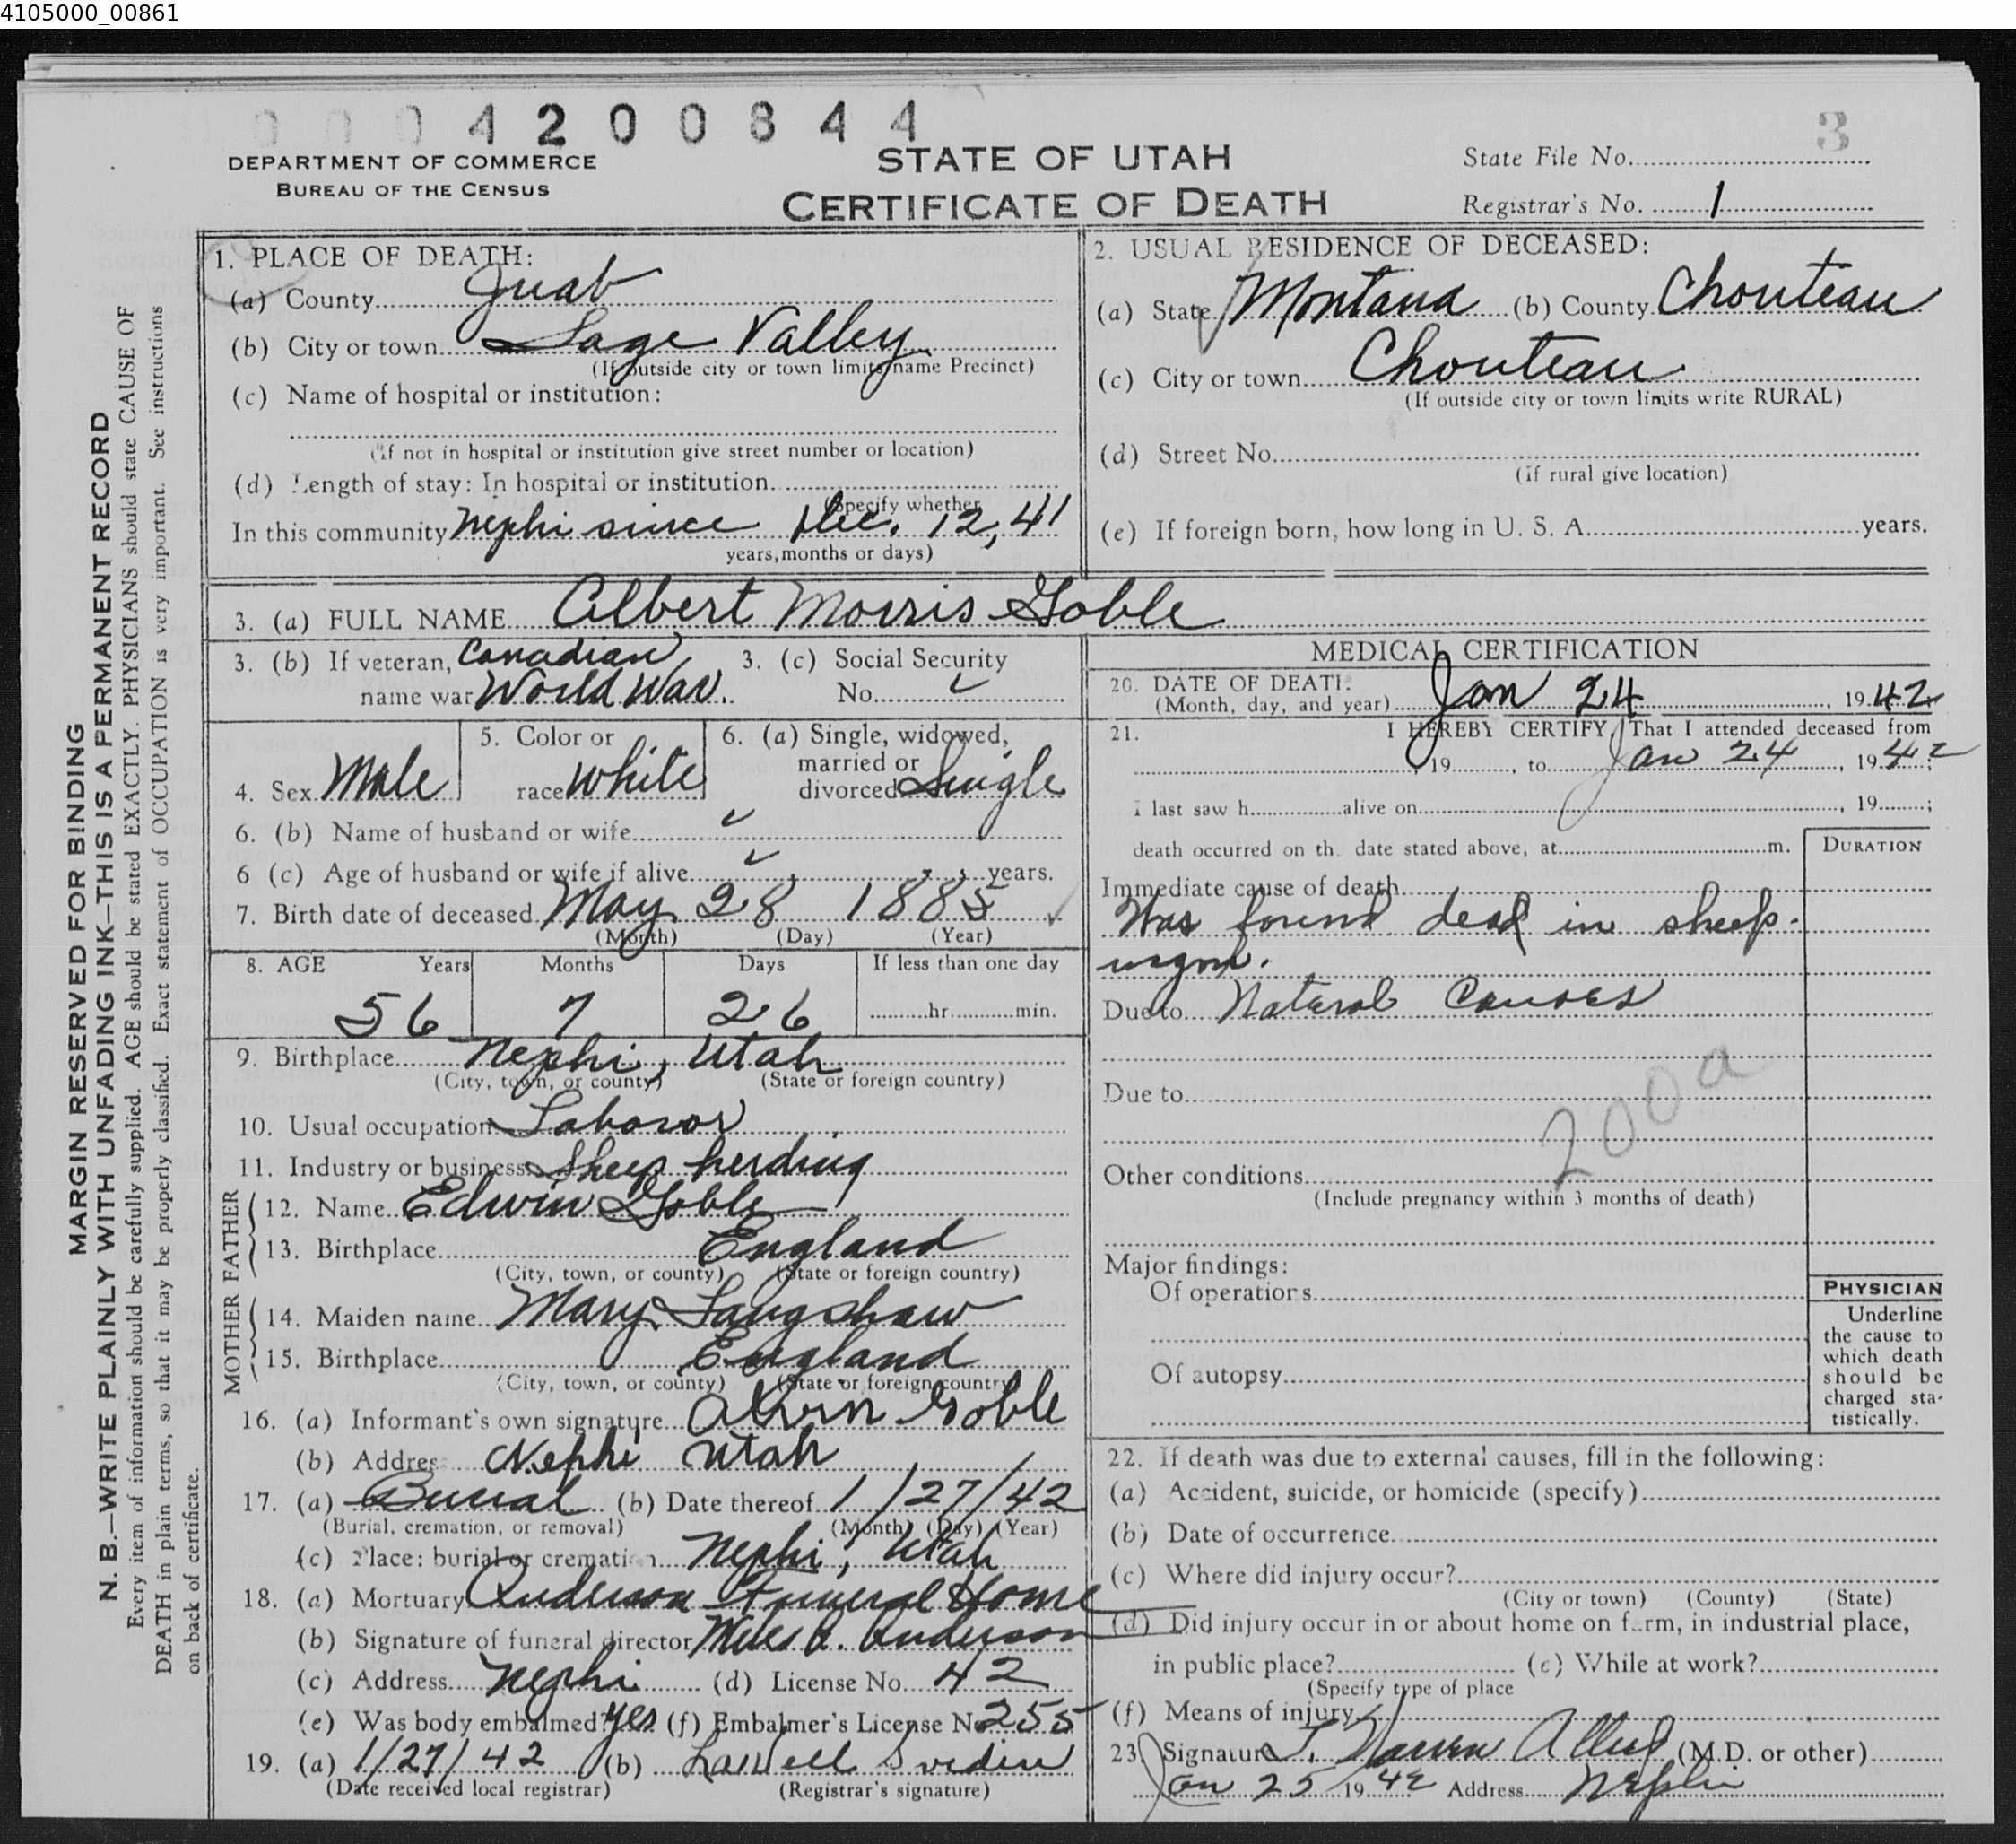 4105000_00861
0 0 0 4 2 0 0 8 4 4
3
DEPARTMENT OF COMMERCE
BUREAU OF THE CENSUS
STATE OF UTAH
CERTIFICATE OF DEATH
State File No.
Registrar's No. 1
MARGIN RESERVED FOR BINDING
N. B.—WRITE PLAINLY WITH UNFADING INK—THIS IS A PERMANENT RECORD
Every item of information should be carefully supplied. AGE should be stated EXACTLY. PHYSICIANS should state CAUSE OF
DEATH in plain terms, so that it may be properly classified. Exact statement of OCCUPATION is very important. See instructions
on back of certificate.
1. PLACE OF DEATH:
(a) County Juab
(b) City or town Sage Valley
(If outside city or town limits name Precinct)
(c) Name of hospital or institution:
(If not in hospital or institution give street number or location)
(d) Length of stay: In hospital or institution
(Specify whether
In this community Nephi since Dec. 12, 41
years, months or days)
2. USUAL RESIDENCE OF DECEASED:
(a) State Montana (b) County Chouteau
(c) City or town Chouteau
(If outside city or town limits write RURAL)
(d) Street No.
(If rural give location)
(e) If foreign born, how long in U. S. A. years.
3. (a) FULL NAME Albert Morris Goble
3. (b) If veteran, Canadian
name war World War.
3. (c) Social Security
No.
4. Sex Male
5. Color or
race White
6. (a) Single, widowed,
married or
divorced Single
6. (b) Name of husband or wife
6 (c) Age of husband or wife if alive years.
7. Birth date of deceased May 28 1885
(Month) (Day) (Year)
8. AGE Years Months Days If less than one day
56 7 26 hr. min.
9. Birthplace Nephi, Utah
(City, town, or county) (State or foreign country)
10. Usual occupation Laboror
11. Industry or business Sheep herding
FATHER
12. Name Edwin Goble
13. Birthplace England
(City, town, or county) (State or foreign country)
MOTHER
14. Maiden name Mary Langshaw
15. Birthplace England
(City, town, or county) (State or foreign country
16. (a) Informant's own signature Alvin Goble
(b) Address Nephi Utah
17. (a) Burial (b) Date thereof 1/27/42
(Burial, cremation, or removal) (Month) (Day) (Year)
(c) Place: burial or cremation Nephi, Utah
18. (a) Mortuary Anderson Funeral Home
(b) Signature of funeral director Miles A. Anderson
(c) Address Nephi (d) License No. 42
(e) Was body embalmed? Yes (f) Embalmer's License No 255
19. (a) 1/27/42 (b) Lowell Svedin
(Date received local registrar) (Registrar's signature)
MEDICAL CERTIFICATION
20. DATE OF DEATH:
(Month, day, and year) Jan 24, 1942
21. I HEREBY CERTIFY, That I attended deceased from
, 19 , to Jan 24, 1942;
I last saw h alive on , 19 ;
death occurred on the date stated above, at m.
DURATION
Immediate cause of death
Was found dead in sheep-
wagon.
Due to Natural Causes
Due to
200a
Other conditions
(Include pregnancy within 3 months of death)
Major findings:
Of operations
Of autopsy
PHYSICIAN
Underline
the cause to
which death
should be
charged sta-
tistically.
22. If death was due to external causes, fill in the following:
(a) Accident, suicide, or homicide (specify)
(b) Date of occurrence
(c) Where did injury occur?
(City or town) (County) (State)
(d) Did injury occur in or about home on farm, in industrial place,
in public place? (e) While at work?
(Specify type of place
(f) Means of injury
23. Signature (M.D. or other)
Jan 25 1942 Address Nephi